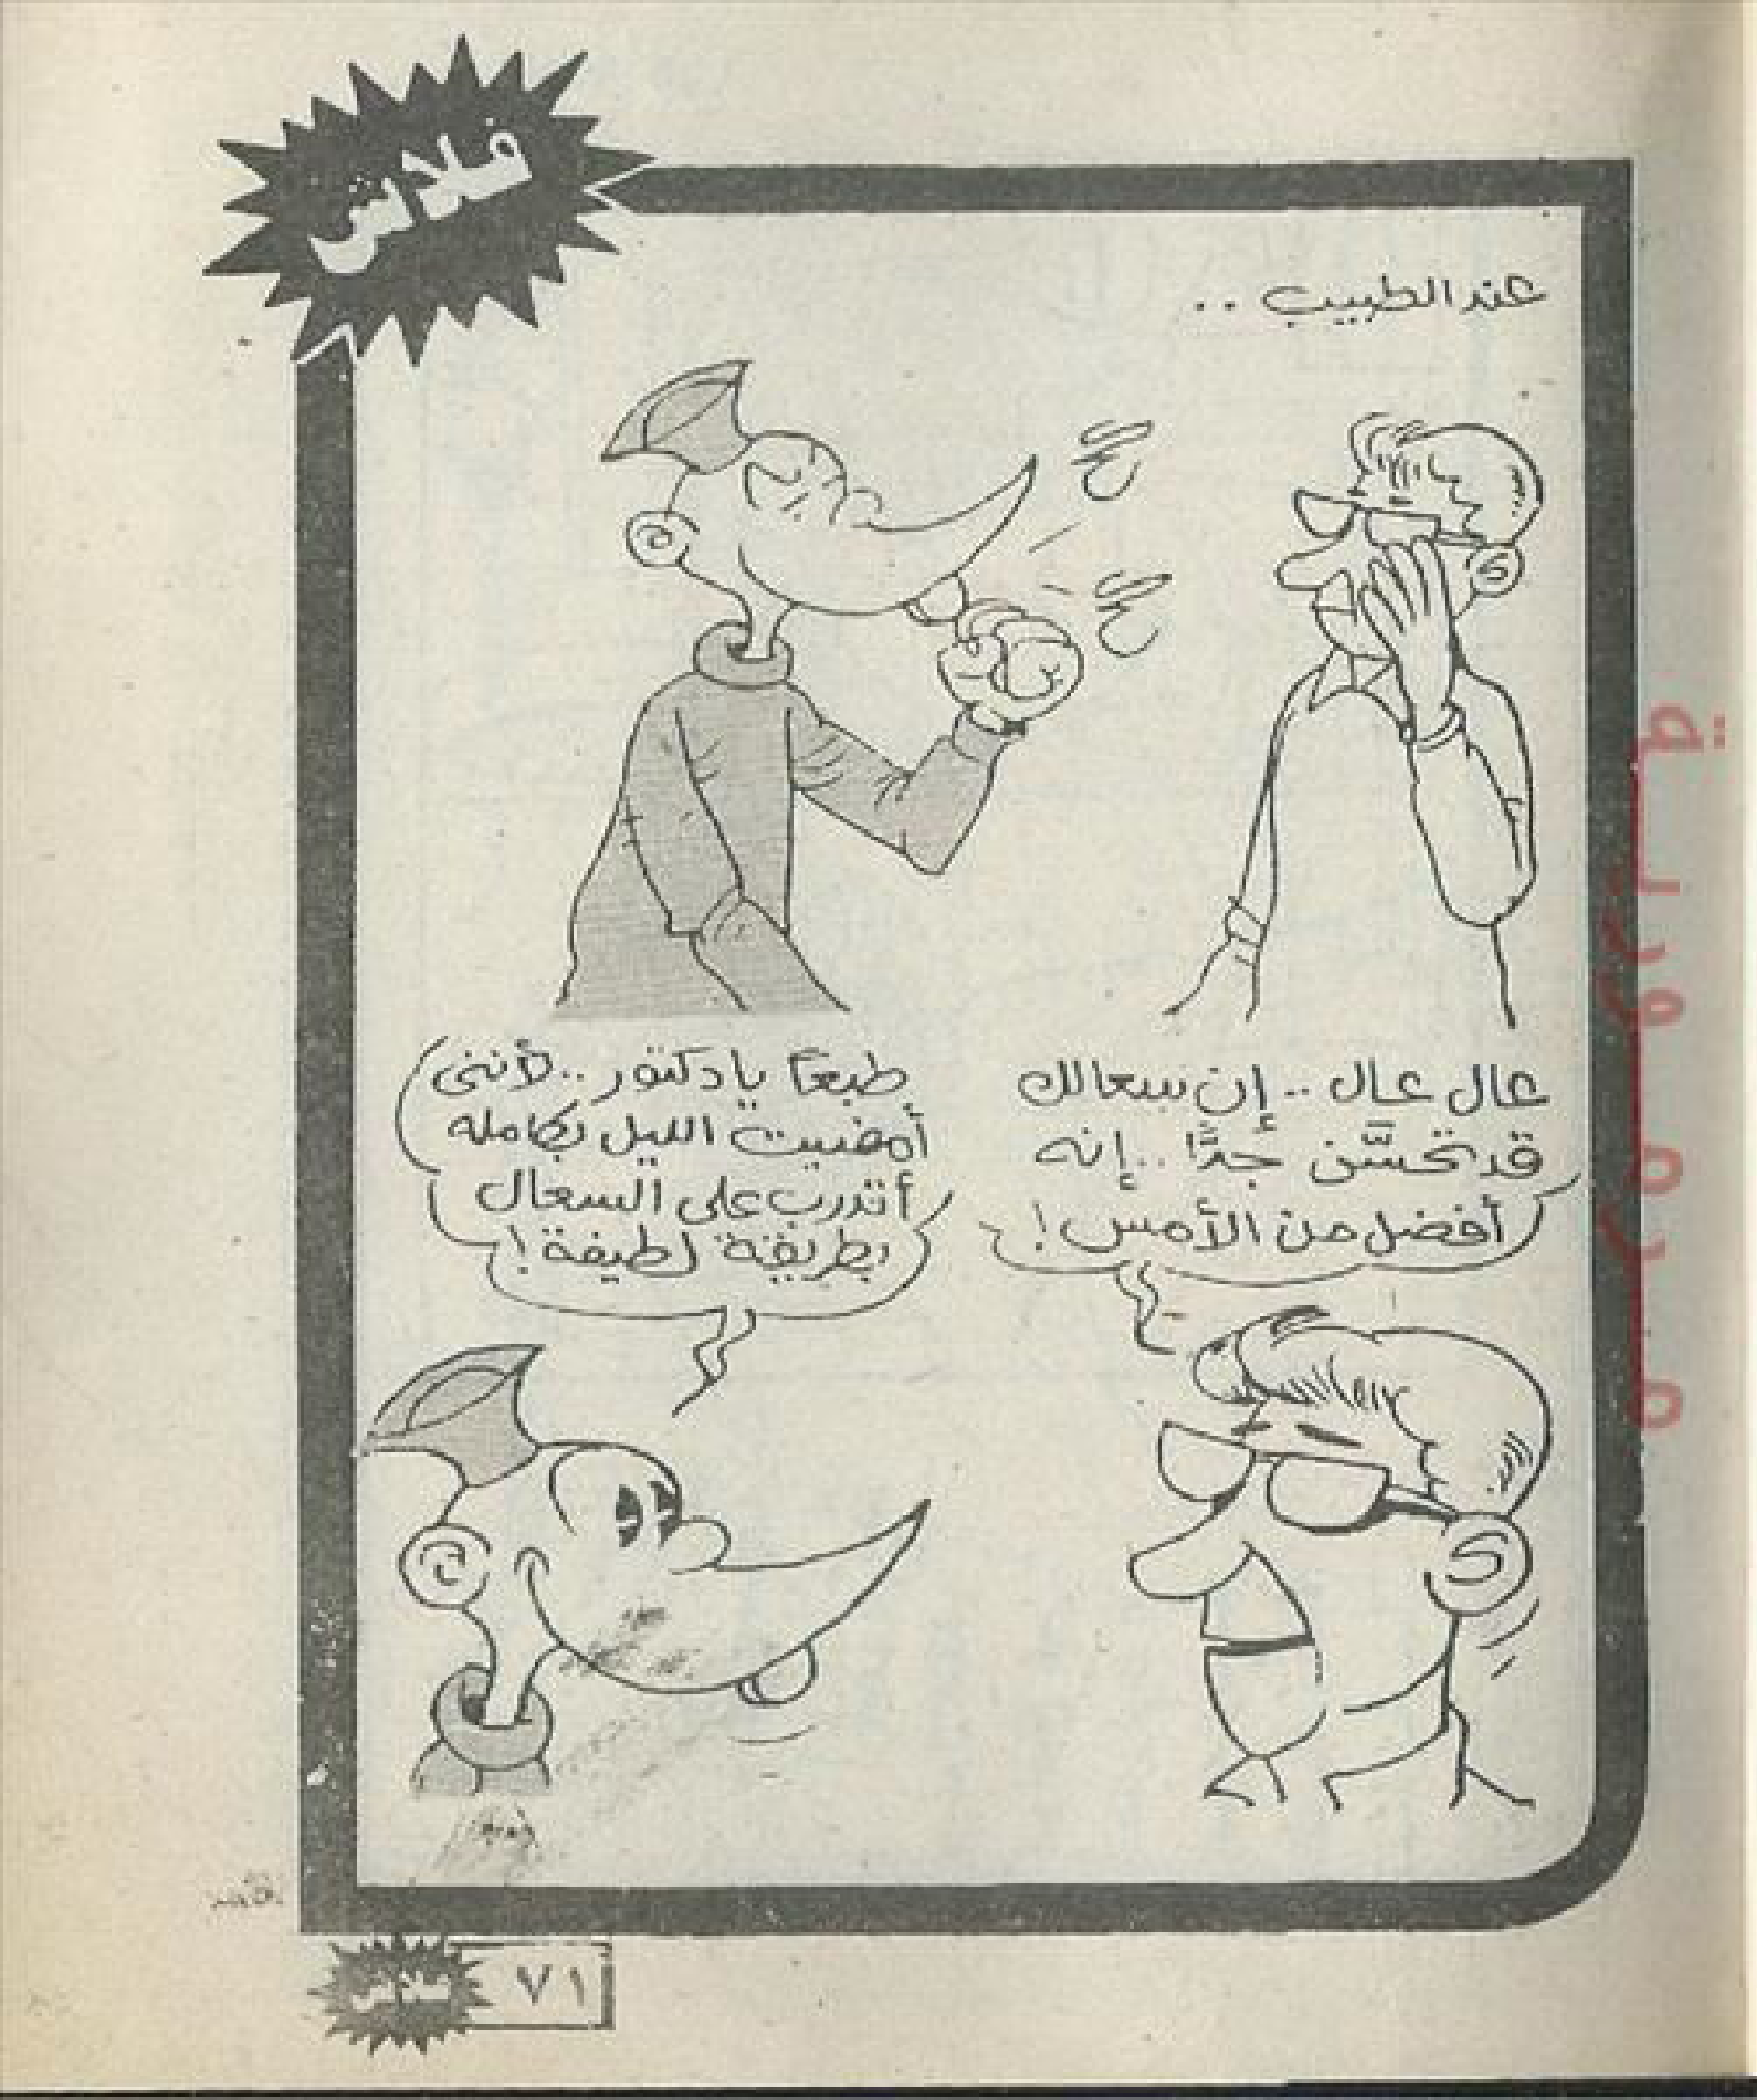 فلاش
عند الطبيب ..
كح
كح
عال عال .. إن سعالك
قد تحسَّن جدًّا .. إنه
أفضل من الأمس !
طبعًا يا دكتور .. لأننى
أمضيت الليل بكامله
أتدرب على السعال
بطريقة لطيفة !
٧١
فلاش